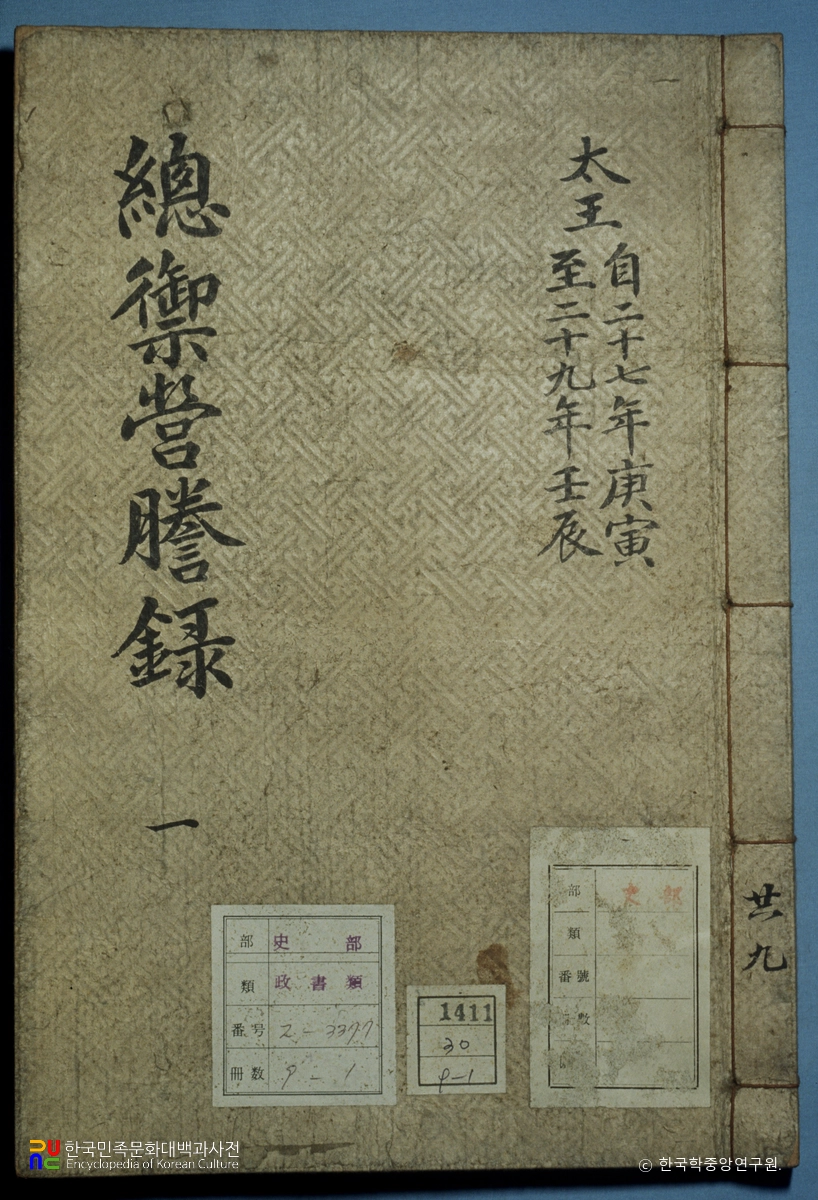 太王
自二十七年庚寅
至二十九年壬辰
總禦營謄録
一
共九
部 史部
類 政書類
番号 2-3377
冊数 9-1
1411
30
9-1
部 史部
類
番號
数
한국민족문화대백과사전
Encyclopedia of Korean Culture
© 한국학중앙연구원